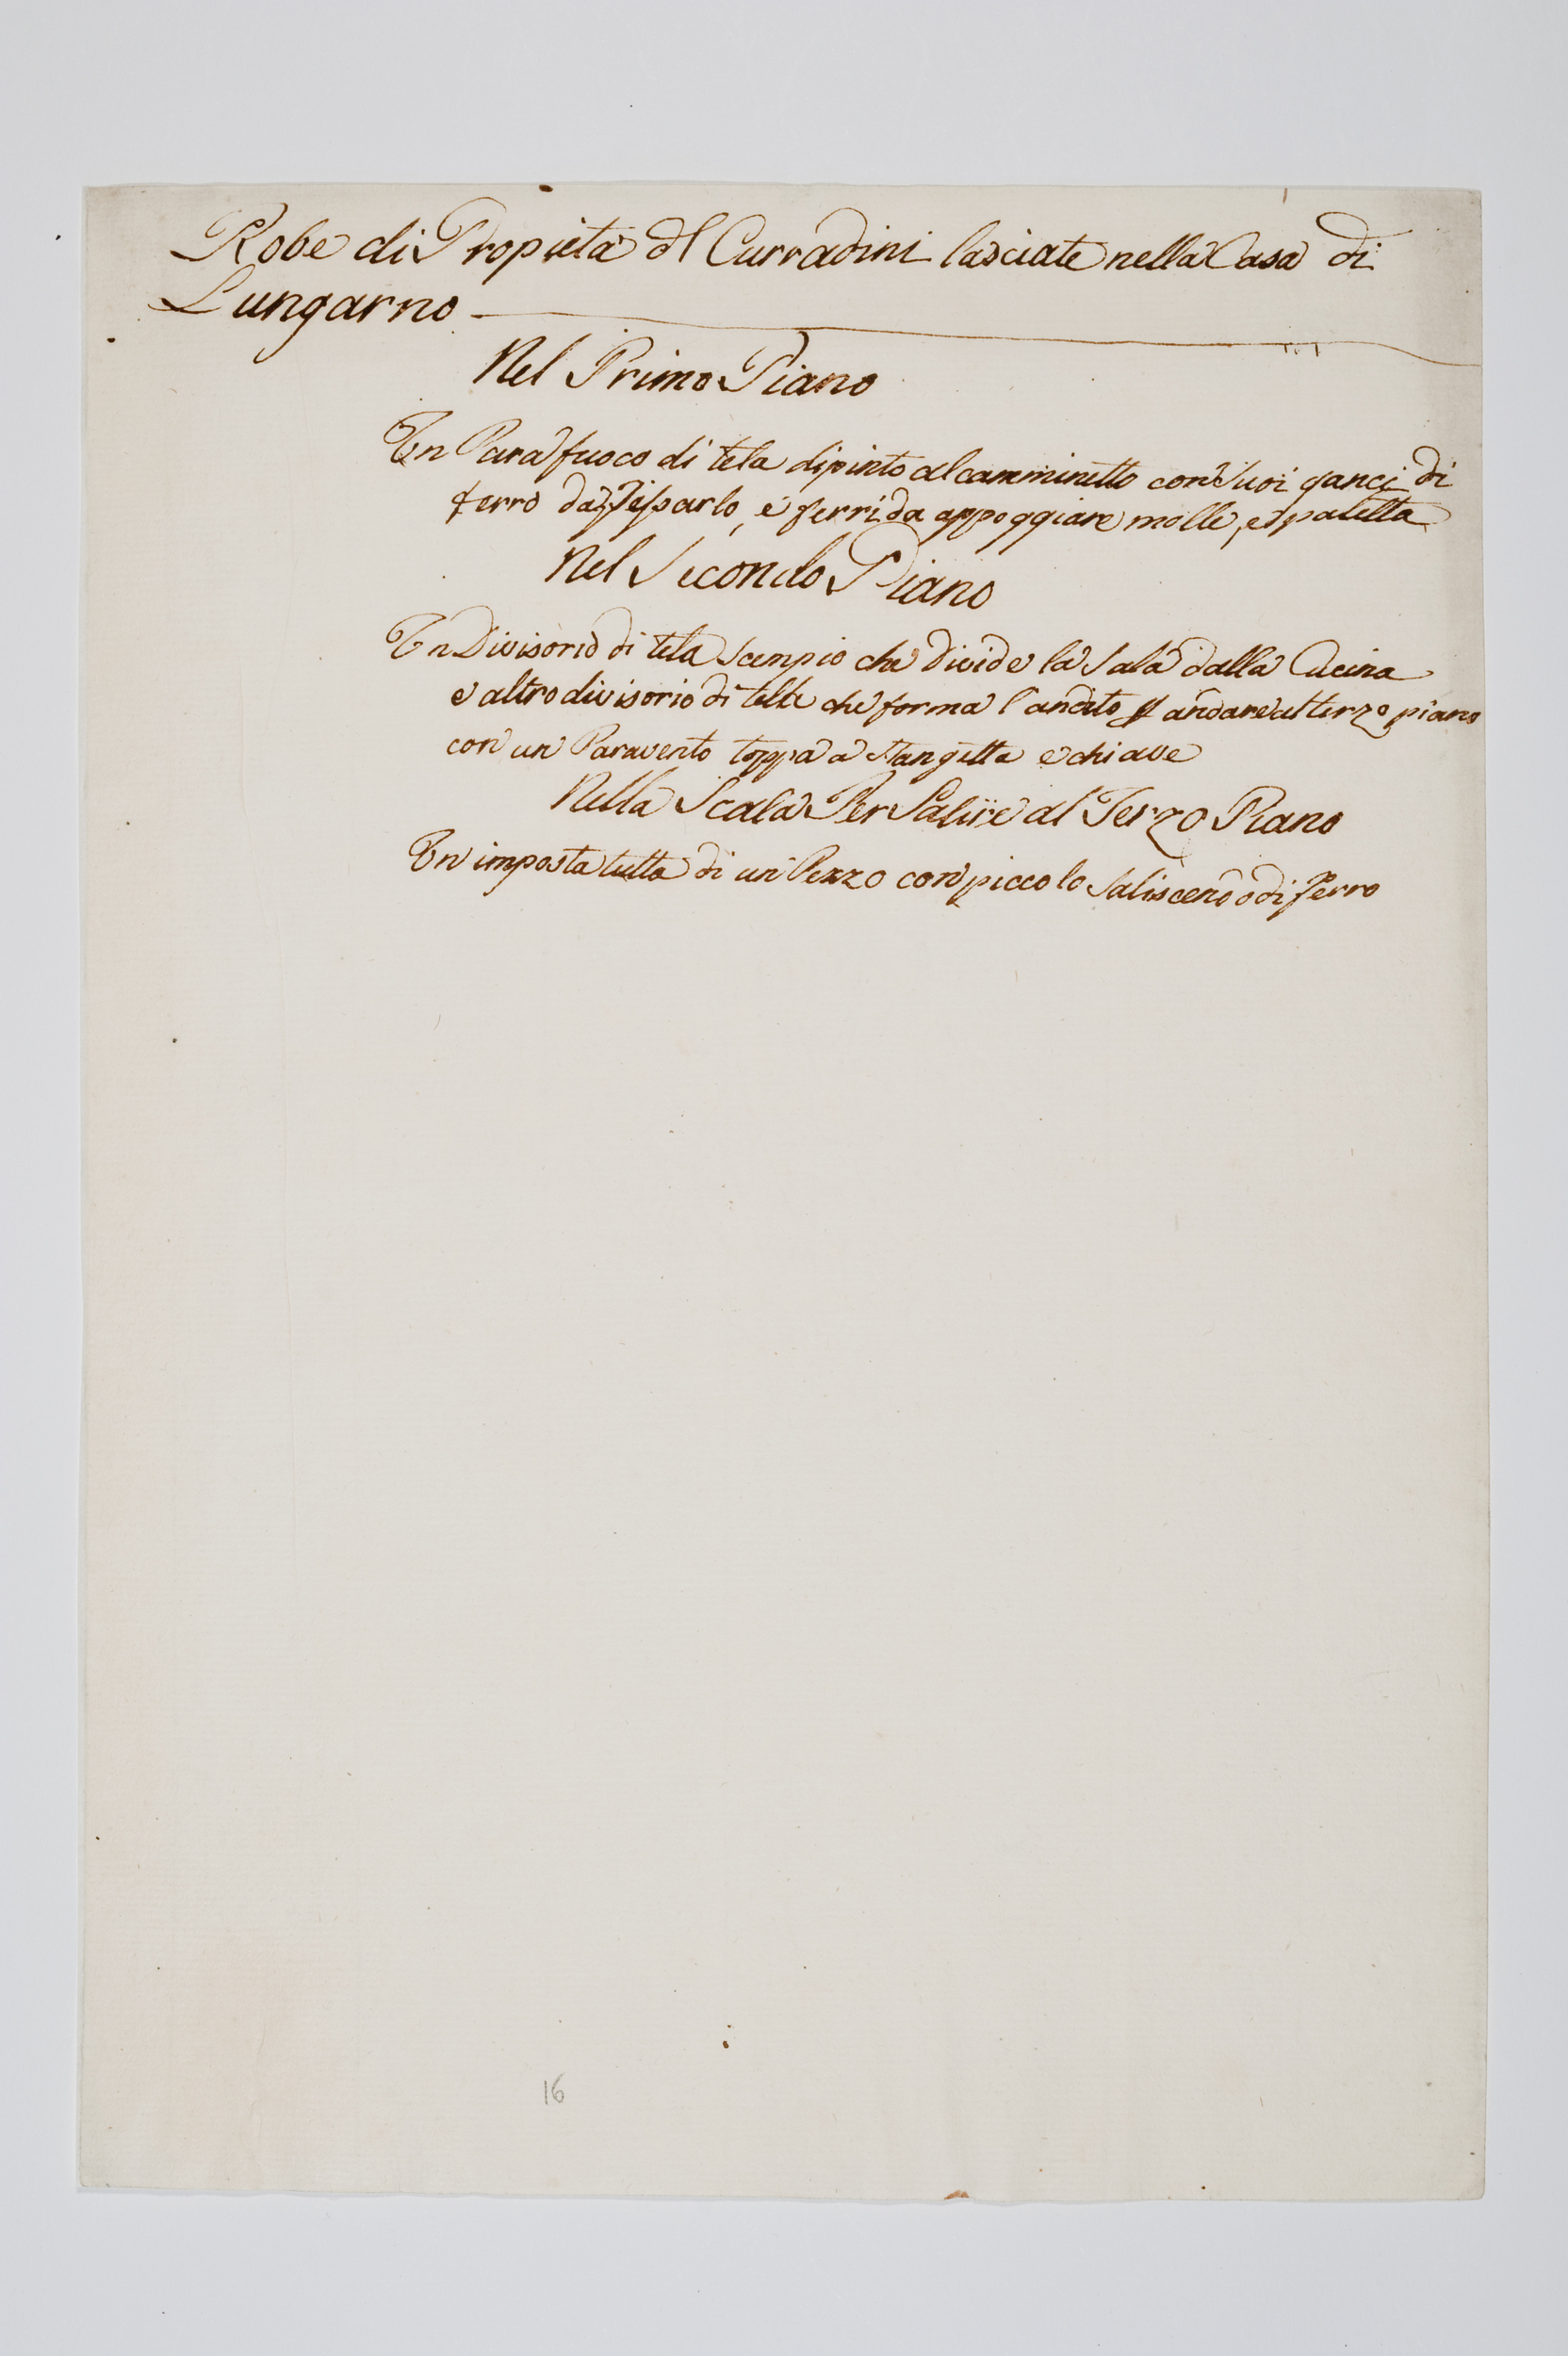 Robe di Propietà dl Curradini lasciate nella Casa di
Lungarno
Nel Primo Piano
Un Parafuoco di tela dipinto al camminetto con suoi ganci di
ferro da fissarlo, e ferri da appoggiare molle, e paletta
Nel Secondo Piano
Un Divisorio di tela scempio che divide la Sala dalla Cucina
e altro divisorio di tela che forma l'andito p andare al terzo piano
con un Paravento toppa a stangetta e chiave
Nella Scala Per Salire al Terzo Piano
Un imposta tutta di un Pezzo con piccolo saliscendo di ferro
16